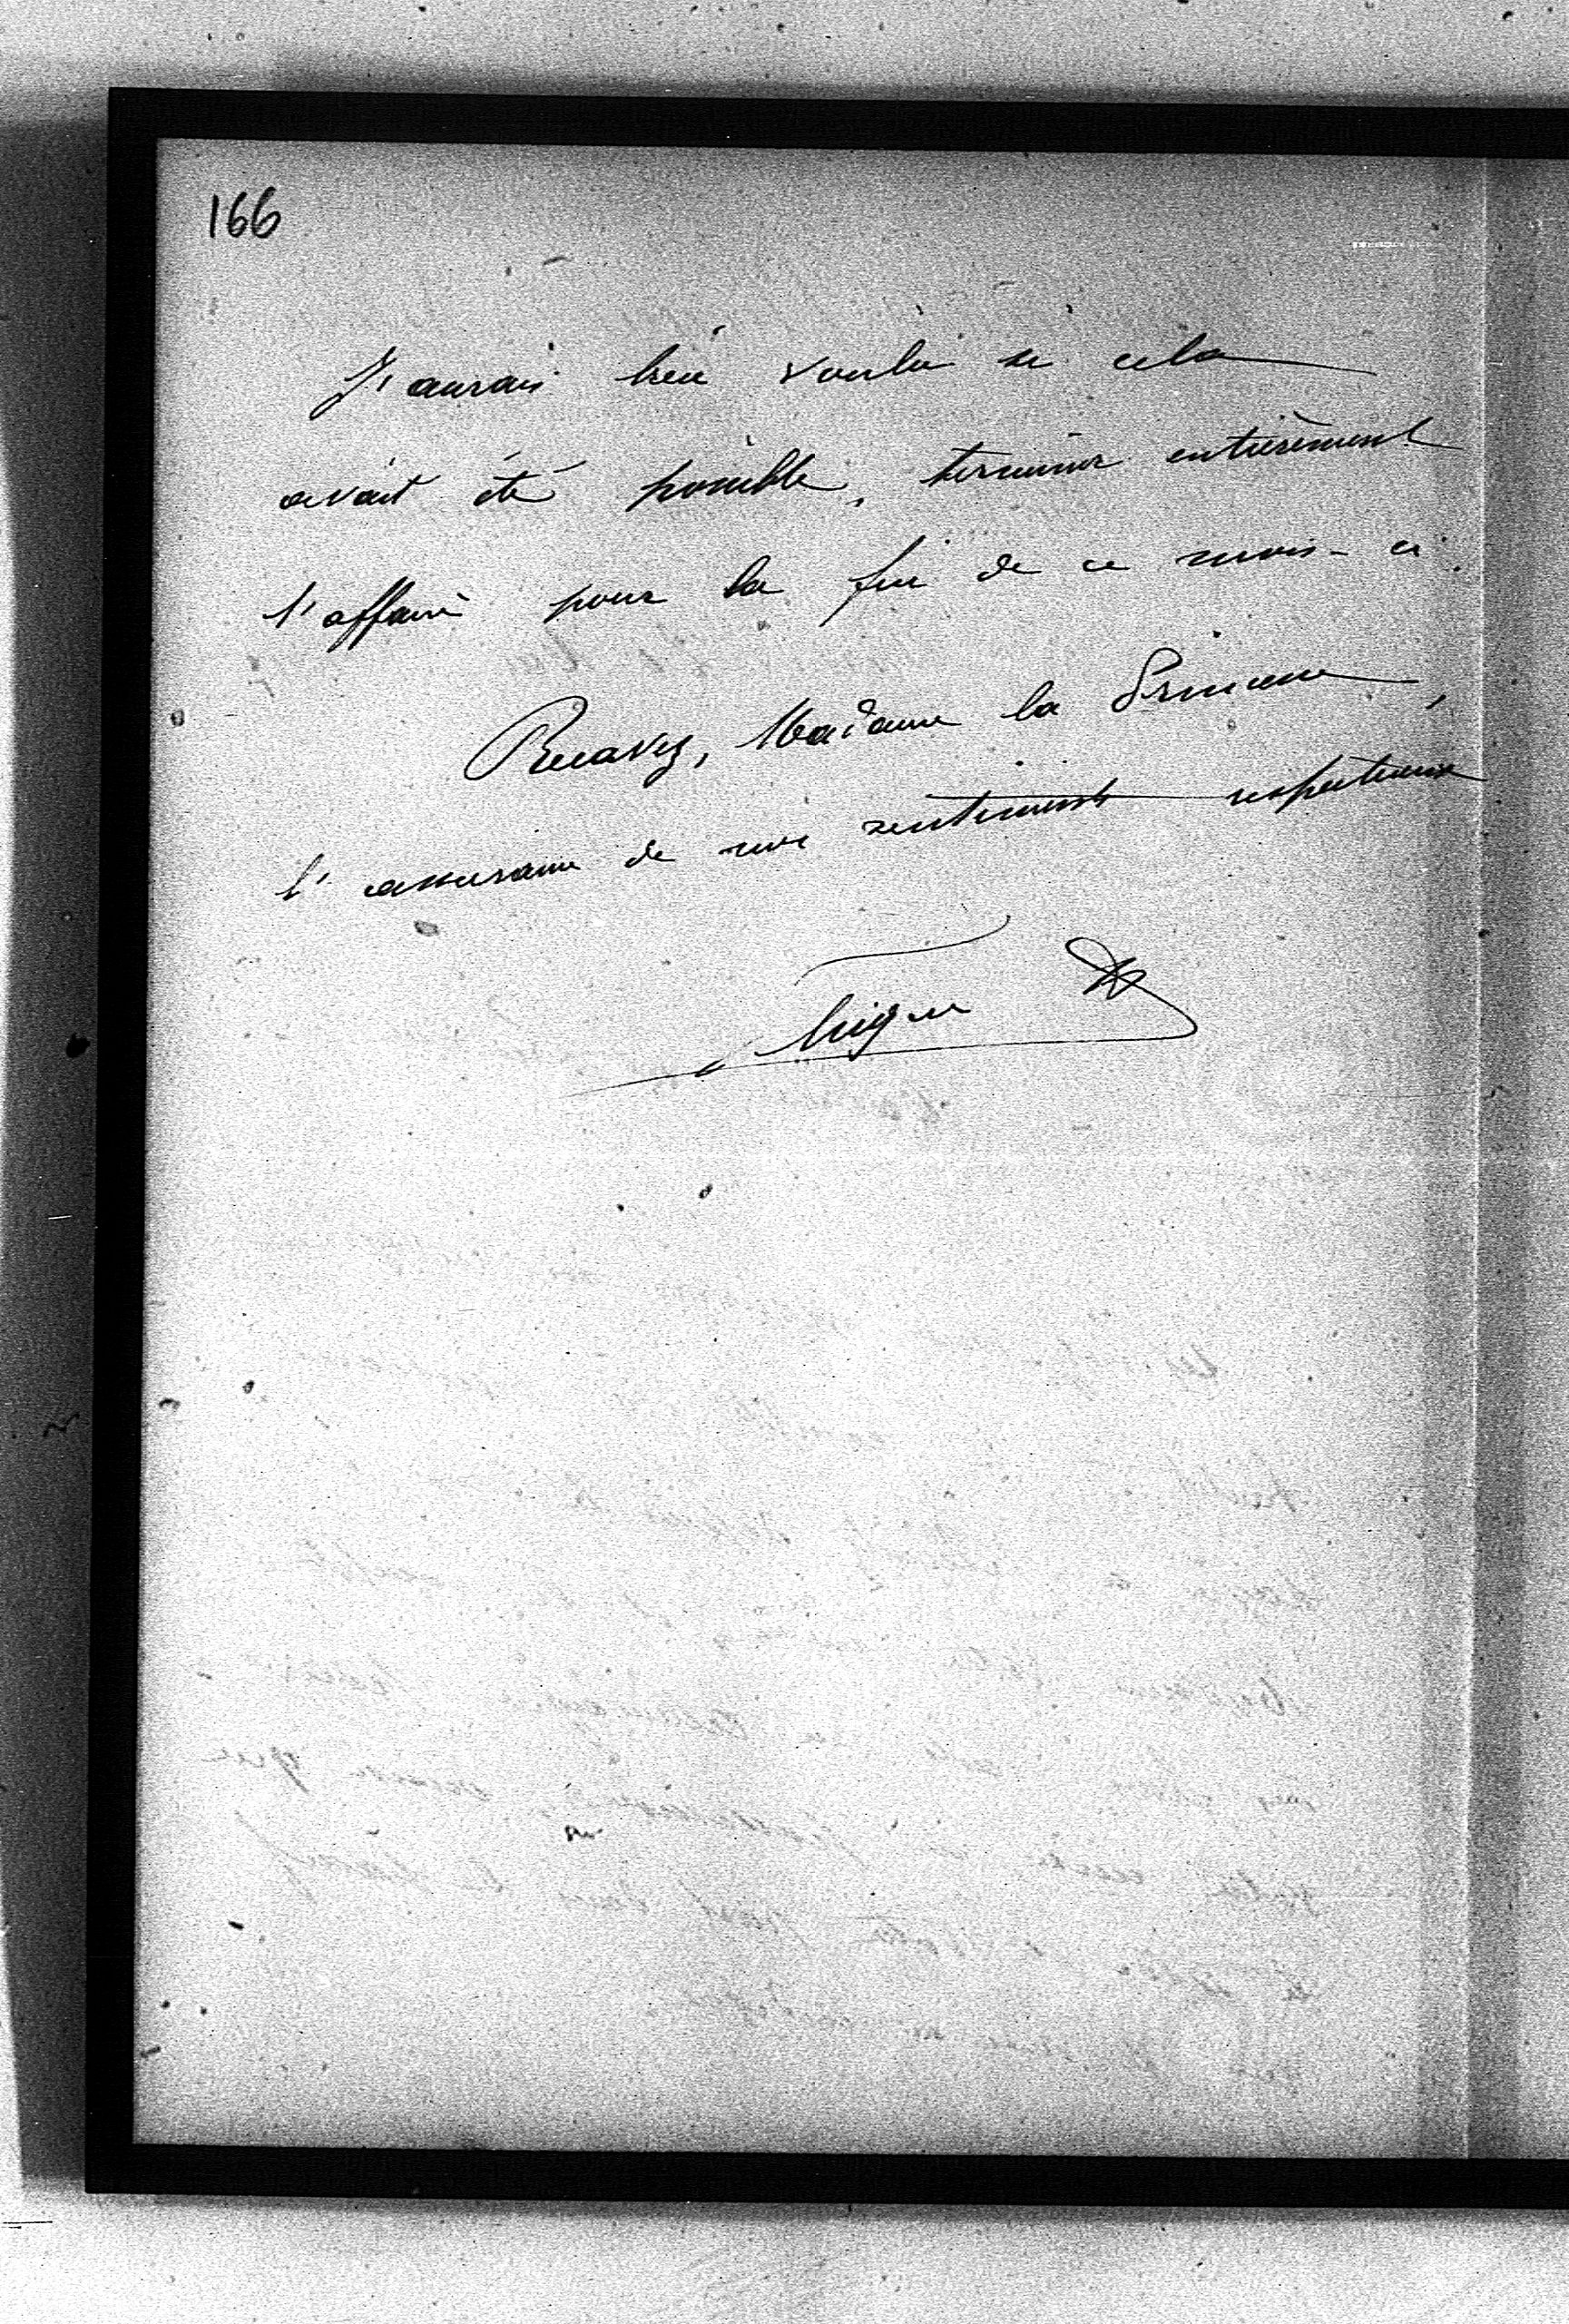 166
J'aurais bien voulu si cela
avait été possible, terminer entièrement
l'affaire pour la fin de ce mois-ci.
Recevez, Madame la Princesse,
l'assurance de mes sentiments respectueux